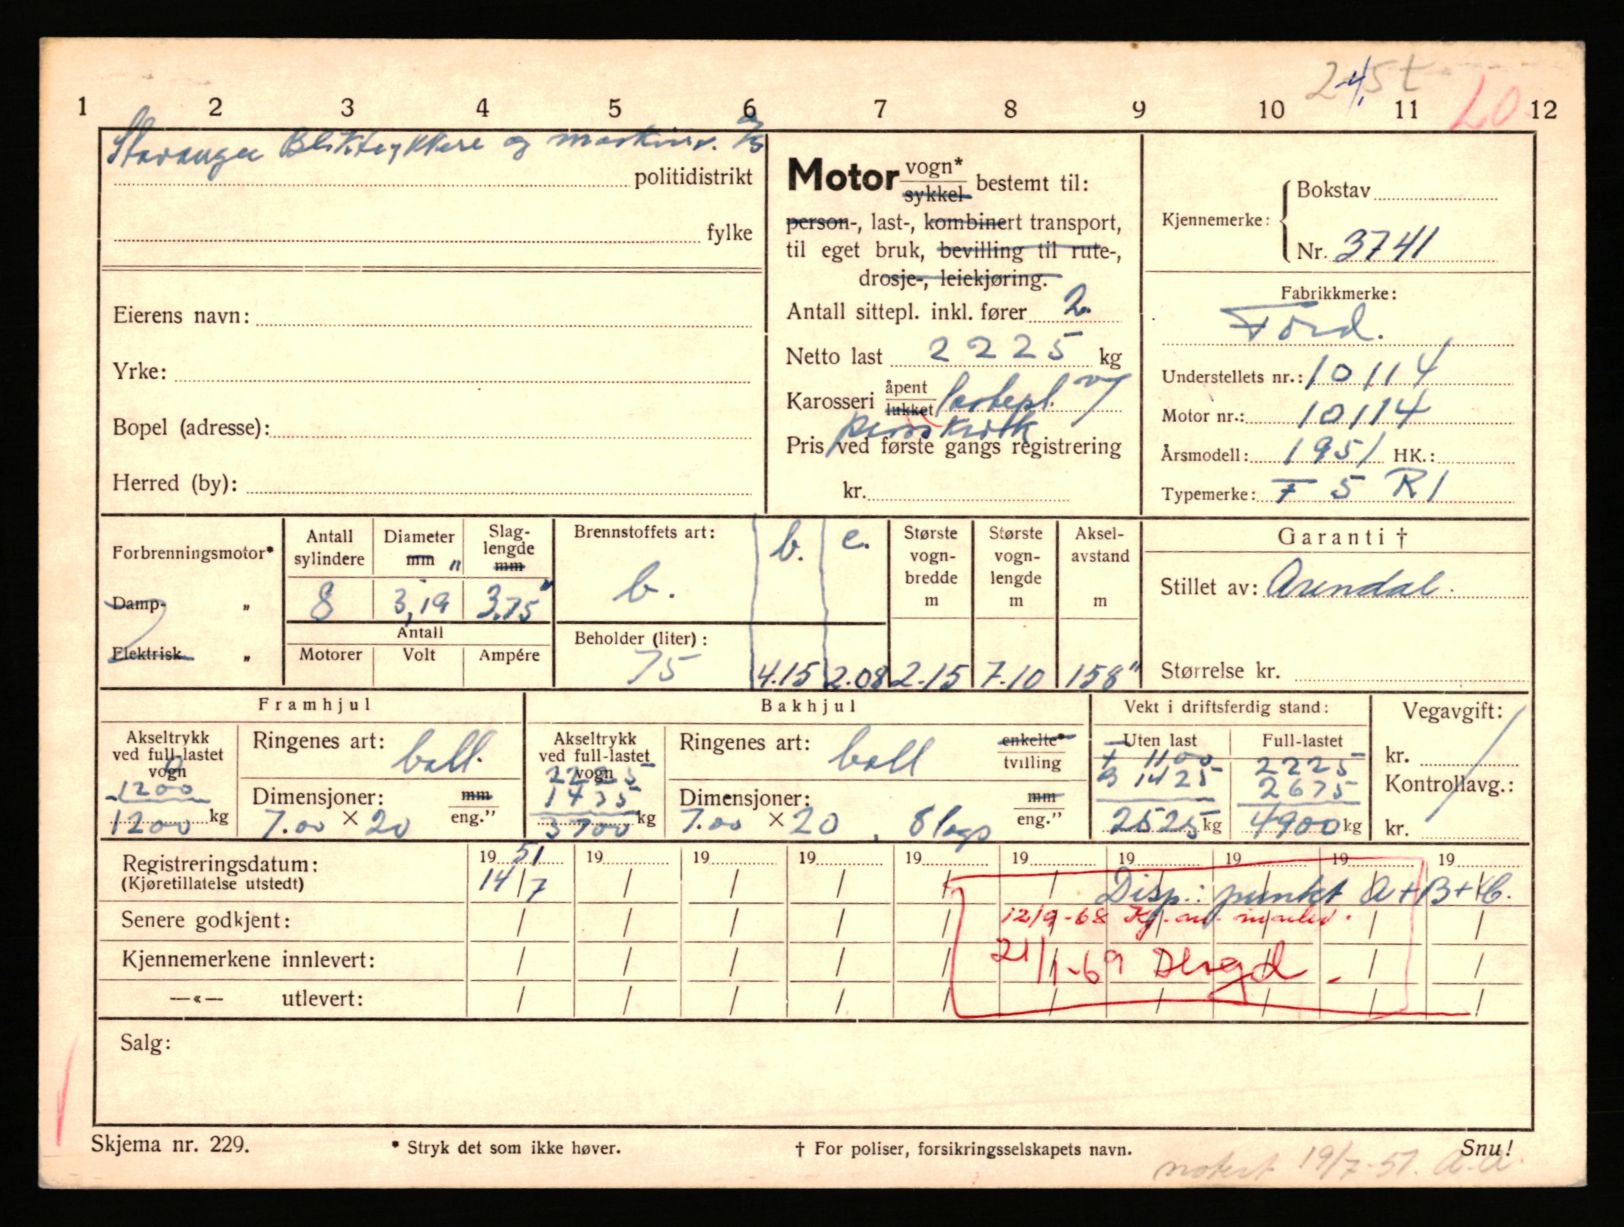 2,5 t 4,
LO
1 2 3 4 5 6 7 8 9 10 11 12
Stavanger Blikktrykkeri og maskinv. a/s
politidistrikt
fylke
Eierens navn:
Yrke:
Bopel (adresse):
Herred (by):
Motor vogn* sykkel bestemt til:
person-, last-, kombinert transport,
til eget bruk, bevilling til rute-,
drosje-, leiekjøring.
Antall sittepl. inkl. fører 2
Netto last 2225 kg
Karosseri åpent lukket lastepl.
Pris ved første gangs registrering
kr.
Kjennemerke: Bokstav
Nr. 3741
Fabrikkmerke:
Ford.
Understellets nr.: 10114
Motor nr.: 10114
Årsmodell: 1951 HK.:
Typemerke: F 5 R1
Forbrenningsmotor*
Damp- "
Elektrisk "
Antall sylindere
8
Diameter mm "
3,19
Slaglengde mm "
3,75
Antall
Motorer Volt Ampére
Brennstoffets art:
b.
Beholder (liter):
75
b. c.
4.15 2.08
Største vogn-bredde m
2.15
Største vogn-lengde m
7.10
Aksel-avstand m
158"
Garanti †
Stillet av: Arendal.
Størrelse kr.
Framhjul
Akseltrykk ved full-lastet vogn
0
1200
1200 kg
Ringenes art: ball.
Dimensjoner: mm eng."
7.00 × 20
Bakhjul
Akseltrykk ved full-lastet vogn
2225
1475
3700 kg
Ringenes art: ball
enkelte* tvilling
Dimensjoner: mm eng."
7.00 × 20, 8 lags
Vekt i driftsferdig stand:
Uten last
F 1100
B 1425
2525 kg
Full-lastet
2225
2675
4900 kg
Vegavgift:
kr.
Kontrollavg.:
kr.
Registreringsdatum:
(Kjøretillatelse utstedt)
19 51 19 19 19 19 19 19 19 19 19
14/7
Disp.: punkt A+B+C.
Senere godkjent:
12/9-68 Kj.
Kjennemerkene innlevert:
21/1-69
—«— utlevert:
Salg:
Skjema nr. 229.
* Stryk det som ikke høver.
† For poliser, forsikringsselskapets navn.
Snu!
notert 19/7-51. A.A.